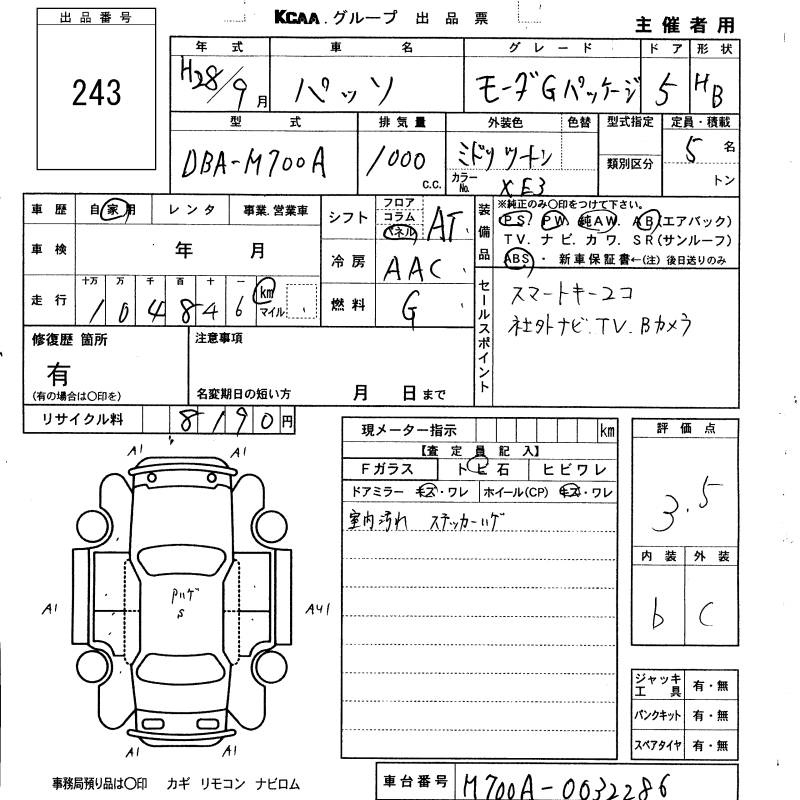 KCAA.グループ 出品票
主催者用
出品番号
243
年式 車名 グレード ドア 形状
H28/9月 パッソ モーダGパッケージ 5 HB
型式 排気量 外装色 色替 型式指定 定員・積載
DBA-M700A 1000 c.c. ミドリツートン 類別区分 5名
カラーNo. XE3 トン
車歴 自家用 レンタ 事業.営業車
シフト フロア コラム パネル AT
装備品 ※純正のみ〇印をつけて下さい。
PS. PW. 純AW. AB(エアバック)
TV. ナビ. カワ. SR(サンルーフ)
ABS・ 新車保証書←(注) 後日送りのみ
車検 年 月
冷房 AAC
走行 十万 万 千 百 十 一 km マイル
1 0 4 8 4 6
燃料 G
セールスポイント
スマートキー2コ
社外ナビ.TV.Bカメラ
修復歴 箇所
有
(有の場合は〇印を)
注意事項
名変期日の短い方 月 日まで
リサイクル料 8190円
現メーター指示 km
【査定員記入】
Fガラス トビ石 ヒビワレ
ドアミラー キズ・ワレ ホイール(CP) キズ・ワレ
室内汚れ ステッカーハゲ
評価点
3.5
内装 外装
b C
A1 A1
A1 Pハゲ A41
S
A1 A1
ジャッキ工具 有・無
パンクキット 有・無
スペアタイヤ 有・無
事務局預り品は〇印 カギ リモコン ナビロム
車台番号 M700A-0032286